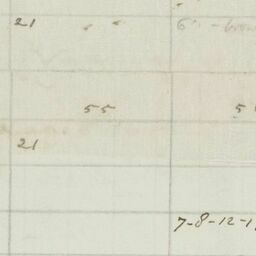 21 " " 6
55 5
21
7-8-12-1